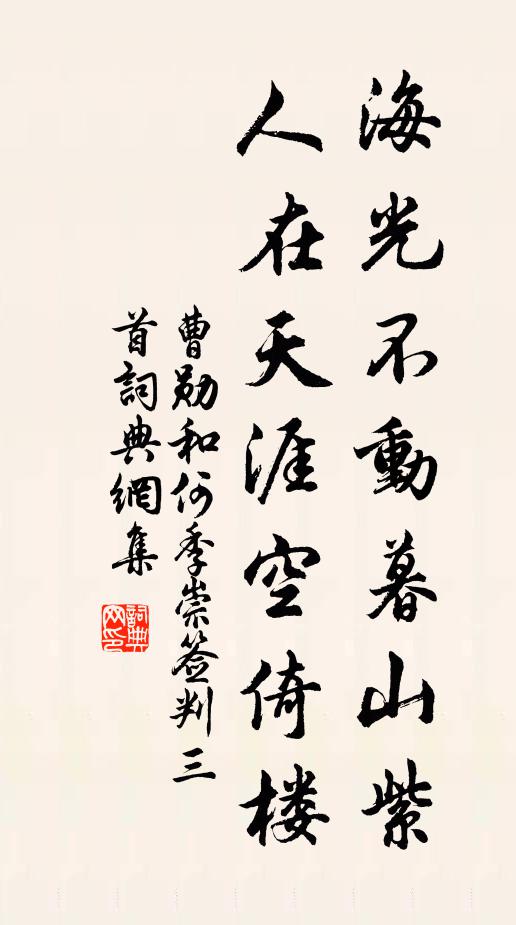 海光不動暮山紫
人在天涯空倚楼
曹勛和何季崇簽判三
首詞典網集
詞典網印